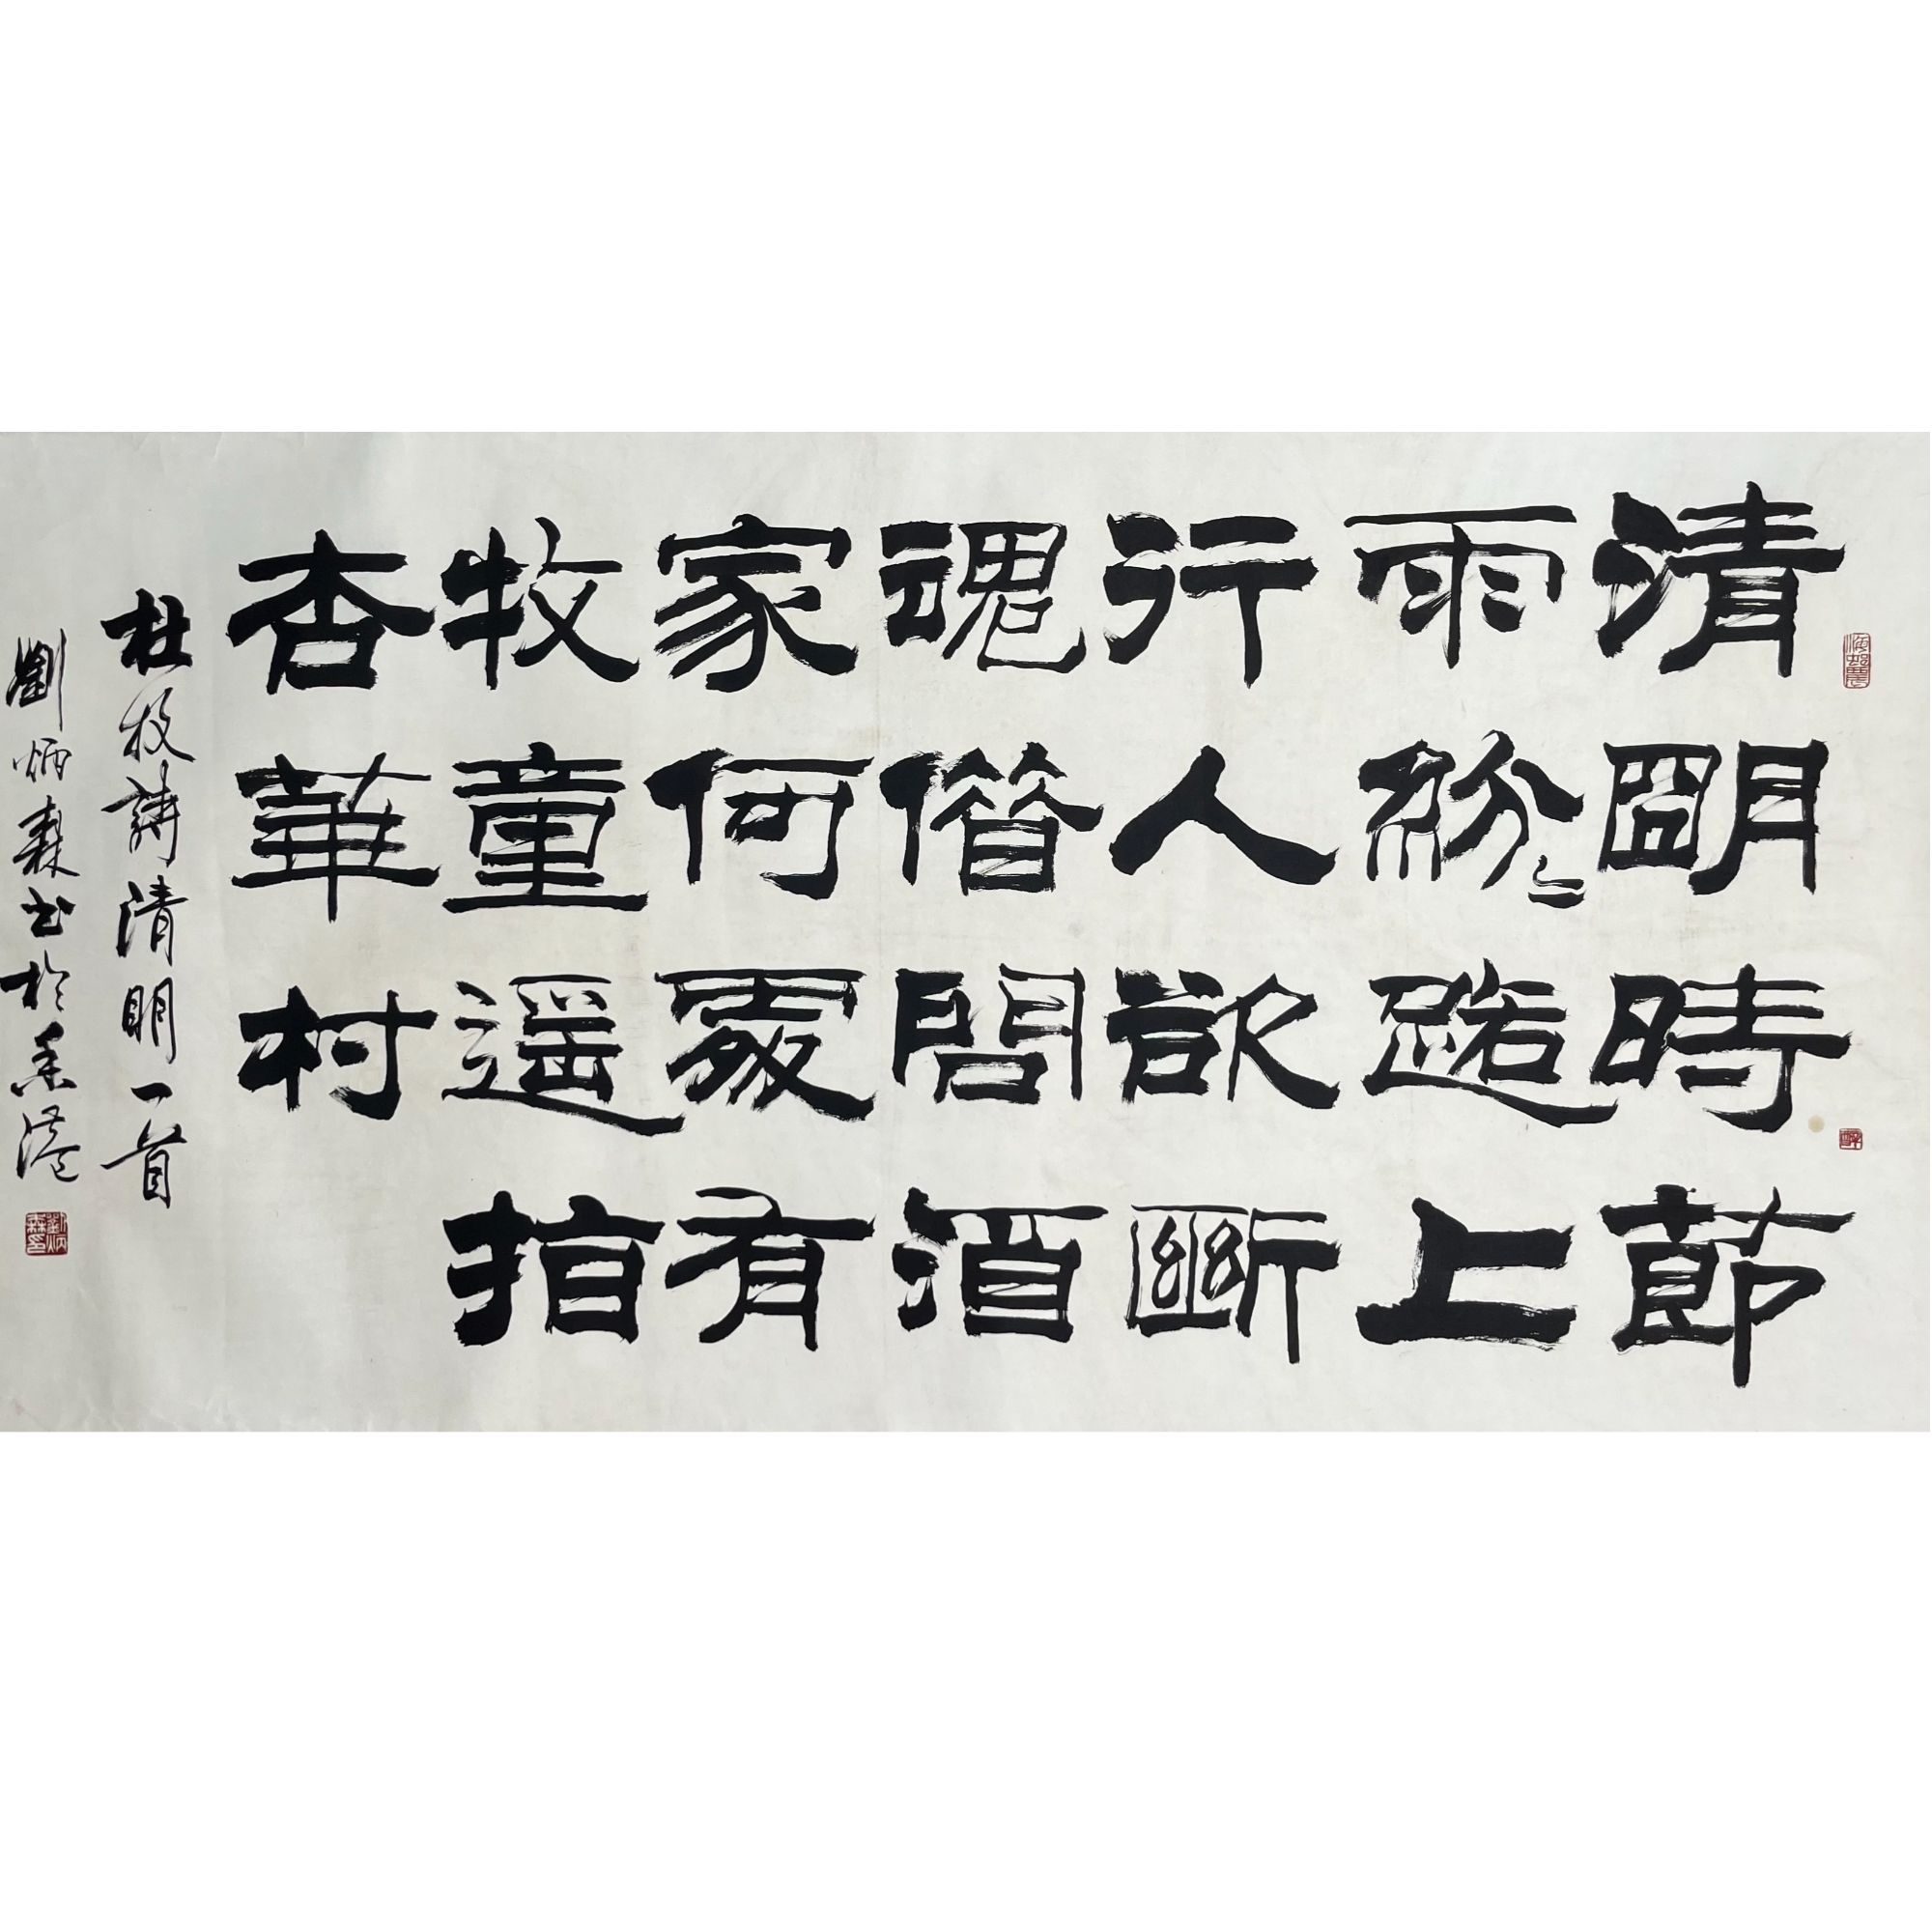 清朙時節
雨紛〻路上
行人欲斷
魂借問酒
家何處有
牧童遥指
杏華村
杜牧詩清明一首
劉炳森书於香港
劉炳森印